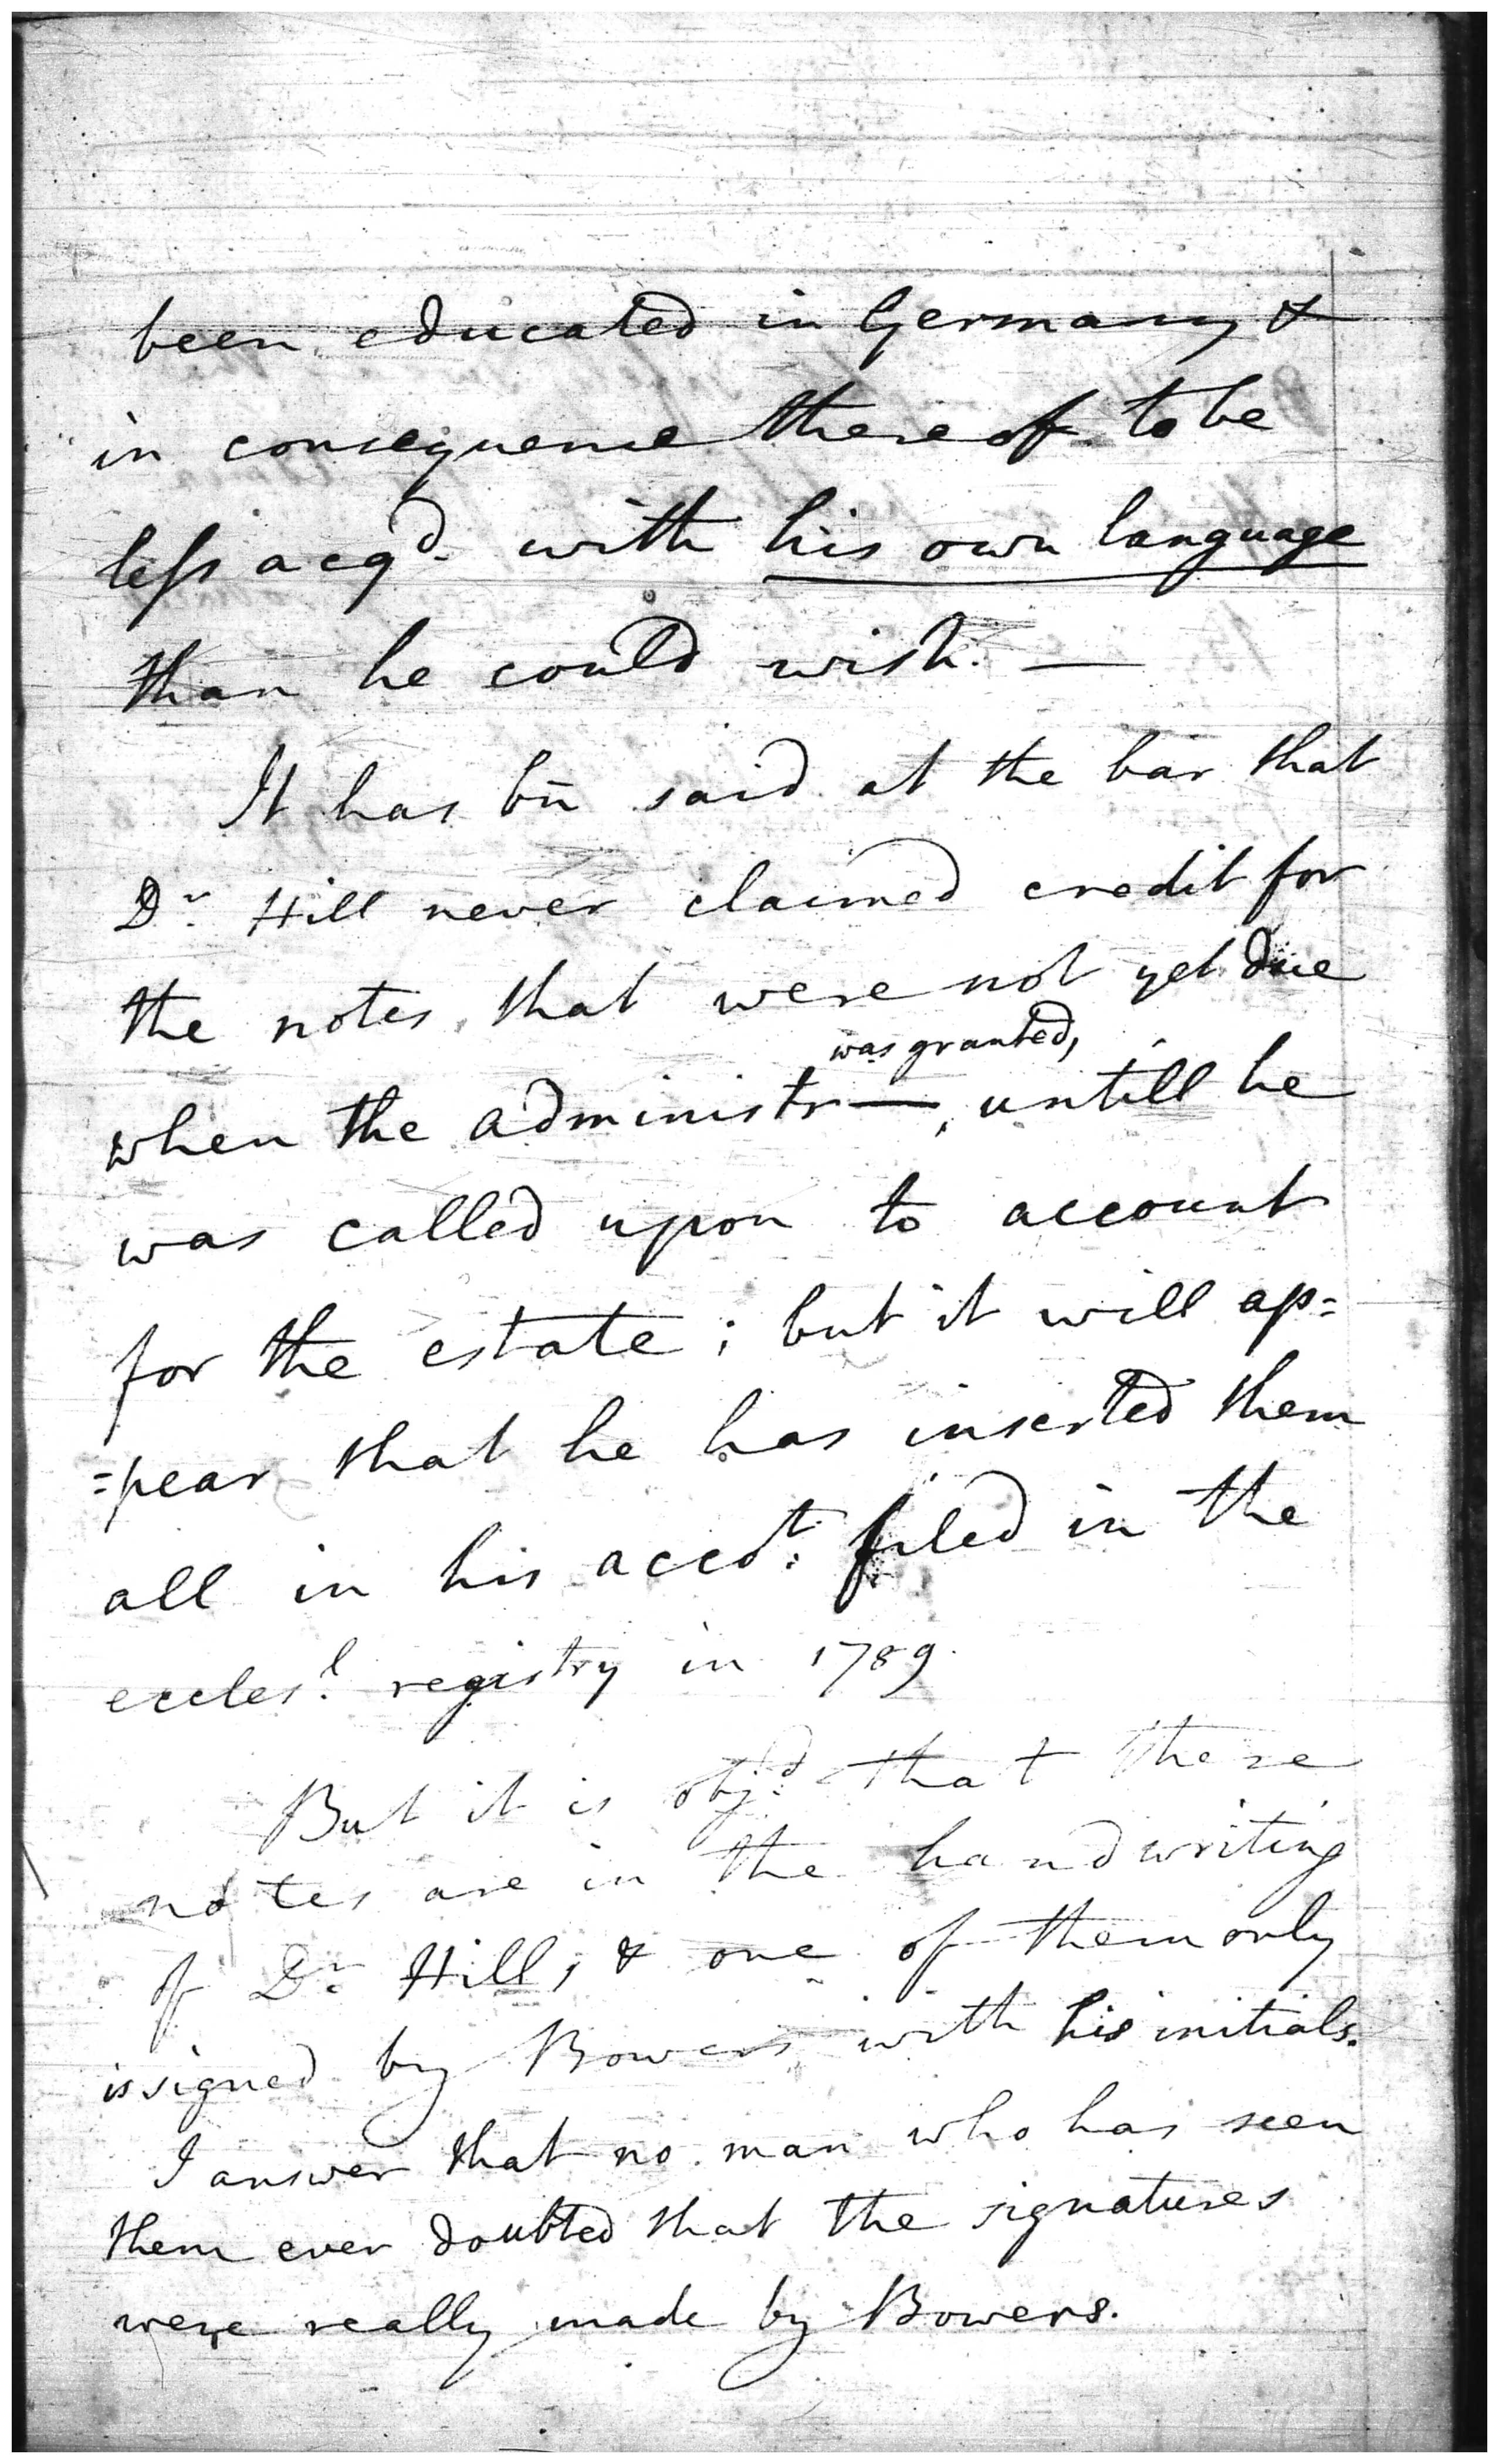 been educated in Germany &
in consequence thereof to be
less acqd. with his own language
than he could wish. —
It has bn̄ said at the bar that
Dr. Hill never claimed credit for
the notes that were not yet due
was granted,
when the administr—, untill he
was called upon to account
for the estate; but it will ap=
=pear that he has inserted them
all in his accot: filed in the
eccles.l registry in 1789.
But it is obj.d that these
notes are in the handwriting
of Dr. Hill, & one of them only
is signed by Bowers with his initials.
I answer that no man who has seen
them ever doubted that the signatures
were really made by Bowers.